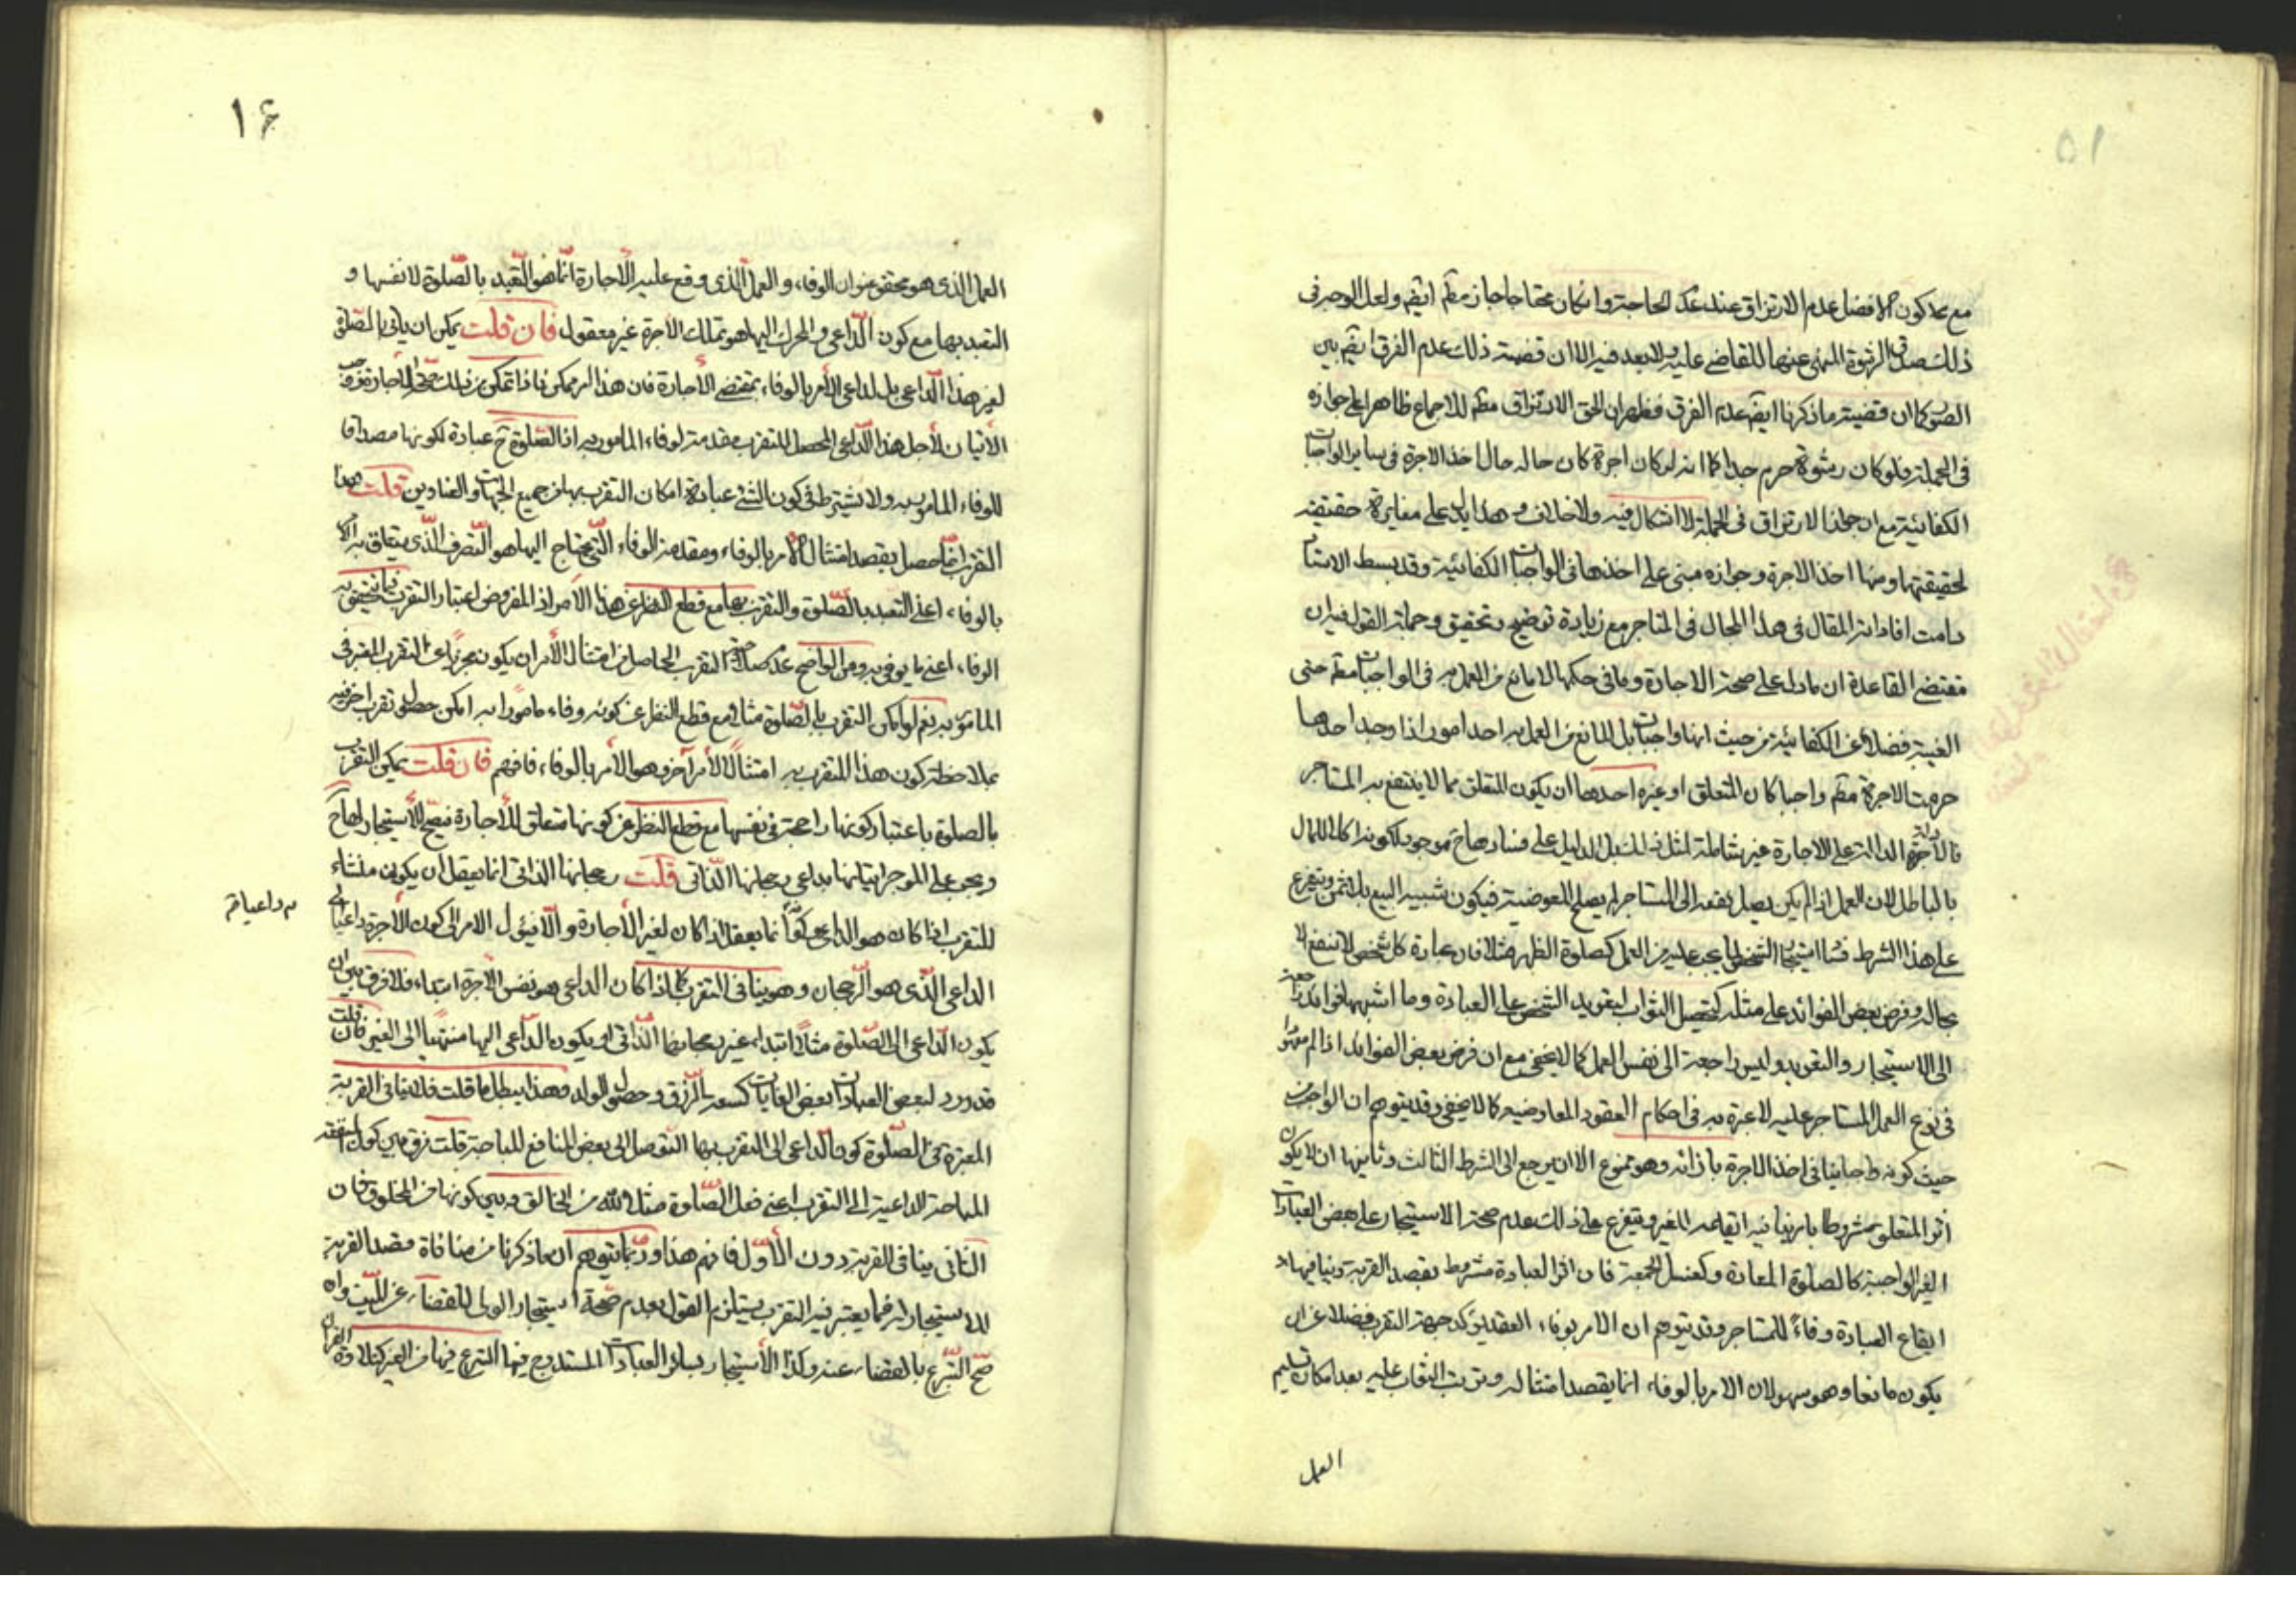 ۵۱
مع عدم كون الافضل عدم الارتزاق عند عدم الحاجة وان كان محتاجا جاز مطم ايضم ولعل الوجه فى
ذلك صدق الرشوة المنهى عنها للقاضى عليه ولا بعد فيه الا ان قضية ذلك عدم الفرق ايضم بين
الصور كما ان قضية ما ذكرنا ايضم عدم الفرق فظهر ان الحق الارتزاق مطم للاجماع ظاهرا على جوازه
فى الجملة فلو كان رشوة حرم جدا كما انه لو كان اجرة كان حاله حال اخذ الاجرة فى ساير الواجبات
الكفائية مع ان جواز الارتزاق فى الجملة لا اشكال فيه ولا خلاف وهذا يدل على مغايرة حقيقته
لحقيقتها ومنها اخذ الاجرة وجوازه مبنى على اخذها فى الواجبات الكفائية وقد بسط الاستاد
دامت افاداته المقال فى هذا المجال فى المتاجر مع زيادة توضيح وتحقيق وجملة القول فيه ان
مقتضى القاعدة ان ما دل على صحة الاجارة وما فى حكمها لا مانع من العمل به فى الواجبات مطم حتى
العينية فضلا عن الكفائية من حيث انها واجبات بل المانع من العمل به احد امور اذا وجد احدها
حرمت الاجرة مطم واجبا كان المتعلق او غيره احدها ان يكون المتعلق مما لا ينتفع به المستاجر
فالادلة الدالة على الاجارة غير شاملة لمثله بل الدليل على فسادها ح موجود لكونه اكلا للمال
بالباطل لان العمل اذا لم يكن يصل نفعه الى المستاجر لم يصلح للعوضية فيكون شبيه البيع بلا ثمن ويتفرع
على هذا الشرط فساد استيجار الشخص لما يجب عليه من العمل كصلوة الظهر مثلا فان عبادة كل شخص لا ينتفع الا
بحاله وفرض بعض الفوائد على مثله كتحصيل الثواب لتعويد الشخص على العبادة وما اشبهها فوايد راجعة
الى الاستيجار والتعويد وليس راجعة الى نفس العمل كما لا يخفى مع ان فرض بعض الفوائد اذا لم يكن معتبرا
فى نوع العمل المستاجر عليه لا عبرة به فى احكام العقود المعاوضية كما لا يخفى وقد يتوهم ان الواجب من
حيث كونه واجبا ينافى اخذ الاجرة بازائه وهو ممنوع الا ان يرجع الى الشرط الثالث وثانيها ان لا يكون
اثر المتعلق مشروطا بما ينافيه ايقاعه للغير ويتفرع على ذلك عدم صحة الاستيجار على بعض العبادات
الغير الواجبة كالصلوة المعادة وكغسل الجمعة فان اثر العبادة مشروط بقصد القربة وينافيها
ايقاع العبادة وفاءً للمستاجر وقد يتوهم ان الامر بوفاء العقد يؤكد جهة التقرب فضلا عن ان
يكون مانعا وهو سهو لان الامر بالوفاء انما يقصد امتثاله ويترتب الثواب عليه بعد امكان تسليم
العمل
۱۶
العمل الذى هو محقق عنوان الوفاء والعمل الذى وقع عليه الاجارة انما هو التعبد بالصلوة لا نفسها و
التعبد بها مع كون الداعى والمحرك اليها هو تملك الاجرة غير معقول فان قلت يمكن ان ياتى بالصلوة
لغير هذا الداعى بل لداعى الامر بالوفاء بمقتضى الاجارة فان هذا امر ممكن فاذا تمكن من ذلك صح الاجارة ووجب
الاتيان لاجل هذا الداعى المحصل للتقرب مقدمة لوفاء المامور به اذ الصلوة ح عبادة لكونها مصداقا
للوفاء المامور به ولا يشترط فى كون الشئ عبادة امكان التقرب بها من جميع الجهات والعناوين قلت هذا
التقرب انما حصل بقصد امتثال الامر بالوفاء ومقدمة الوفاء التى يحتاج اليها هو التصرف الذى يتعلق به الامر
بالوفاء اعنى التعبد بالصلوة والتقرب بها مع قطع النظر عن هذا الامر اذ المفروض اعتبار التقرب فيما يتحقق به
الوفاء اعنى ما يوفى به ومن الواضح عدم صلاحية التقرب الحاصل من امتثال الامر ان يكون مجزيا عن التقرب المعتبر فى
المامور به نعم لو امكن التقرب بالصلوة مثلا مع قطع النظر عن كونه وفاء مامورا به امكن حصول تقرب اخر فيه
بملاحظة كون هذا المتقرب به امتثالا لامر آخر وهو الامر بالوفاء فافهم فان قلت يمكن التقرب
بالصلوة باعتبار كونها راجحة فى نفسها مع قطع النظر عن كونها متعلق للاجارة فيصح الاستيجار لها ح
ويجب على الموجر اتيانها بداعى رجحانها الذاتى قلت رجحانها الذاتى انما يعقل ان يكون منشاء
للتقرب اذا كان هو الداعى وكونه داعيا انما يعقل اذا كان لغير الاجارة والا فيئول الامر الى كون الاجرة داعيا الى
الداعى الذى هو الرجحان وهو ينافى التقرب كما اذا كان الداعى هو نفس الاجرة ابتداء فلا فرق بين ان
يكون الداعى الى الصلوة مثلا ابتداء غير رجحانها الذاتى او يكون الداعى اليها منتهيا الى الغير فان قلت
قد ورد لبعض العبادات بعض الغايات كسعة الرزق وحصول الولد وهذا يبطل ما قلت فلا ينافى القربة
المعتبرة فى الصلوة كون الداعى الى التقرب بها التوصل الى بعض المنافع المباحة قلت فرق بين كون المنفعة
المباحة الداعية الى التقرب اعنى فعل الصلوة مثلا لله من الخالق وبين كونها من المخلوق فان
الثانى ينافى القربة دون الاول فافهم هذا وربما يتوهم ان ما ذكرنا من منافاة قصد القربة
للاستيجار له فيما يعتبر فيه التقرب يستلزم القول بعدم صحة استيجار الولى للقضاء عن الميت وان
صح التبرع بالقضاء عنه وكذا الاستيجار بساير العبادات المستندوب فيها التبرع فيها من الغير كتلاوة القران